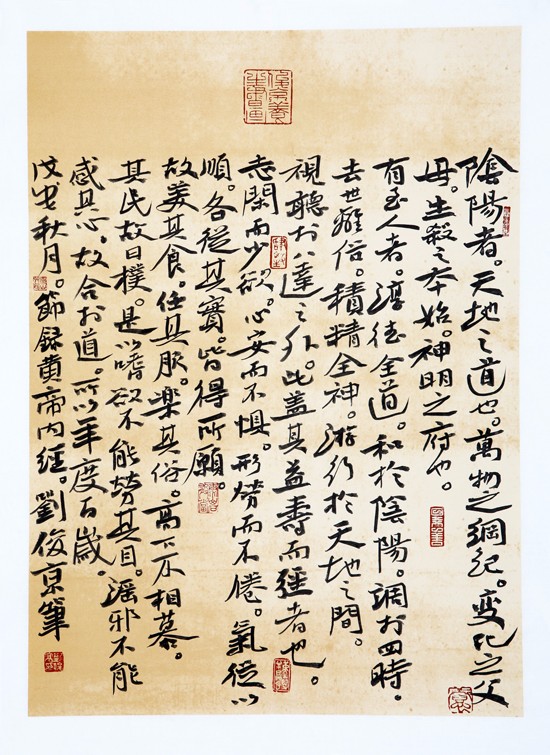 陰陽者。天地之道也。萬物之綱紀。變化之父
母。生殺之本始。神明之府也。
有至人者。淳德全道。和於陰陽。調於四時。
去世離俗。積精全神。游行於天地之間。
視聽於八達之外。此蓋其益壽而強者也。
志閑而少欲。心安而不懼。形勞而不倦。氣從以
順。各從其實。皆得所願。
故美其食。任其服。樂其俗。高下不相慕。
其民故曰樸。是以嗜欲不能勞其目。淫邪不能
感其心。故合於道。所以年度百歲。
戊戌秋月。節錄黃帝內經。劉俊京筆